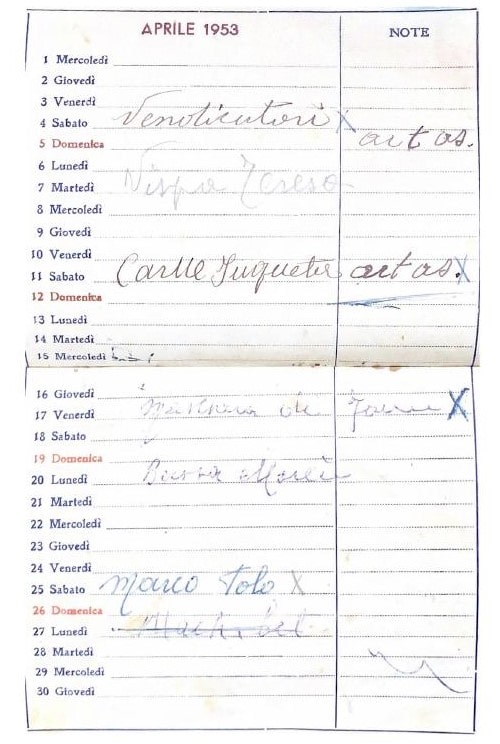 APRILE 1953
NOTE
1 Mercoledì
2 Giovedì
3 Venerdì
4 Sabato Vendicatori X art as.
5 Domenica
6 Lunedì
7 Martedì Vispa Teresa
8 Mercoledì
9 Giovedì
10 Venerdì
11 Sabato art as. X
12 Domenica
13 Lunedì
14 Martedì
15 Mercoledì
16 Giovedì
17 Venerdì de X
18 Sabato
19 Domenica
20 Lunedì
21 Martedì
22 Mercoledì
23 Giovedì
24 Venerdì
25 Sabato Marco Polo X
26 Domenica
27 Lunedì
28 Martedì
29 Mercoledì
30 Giovedì